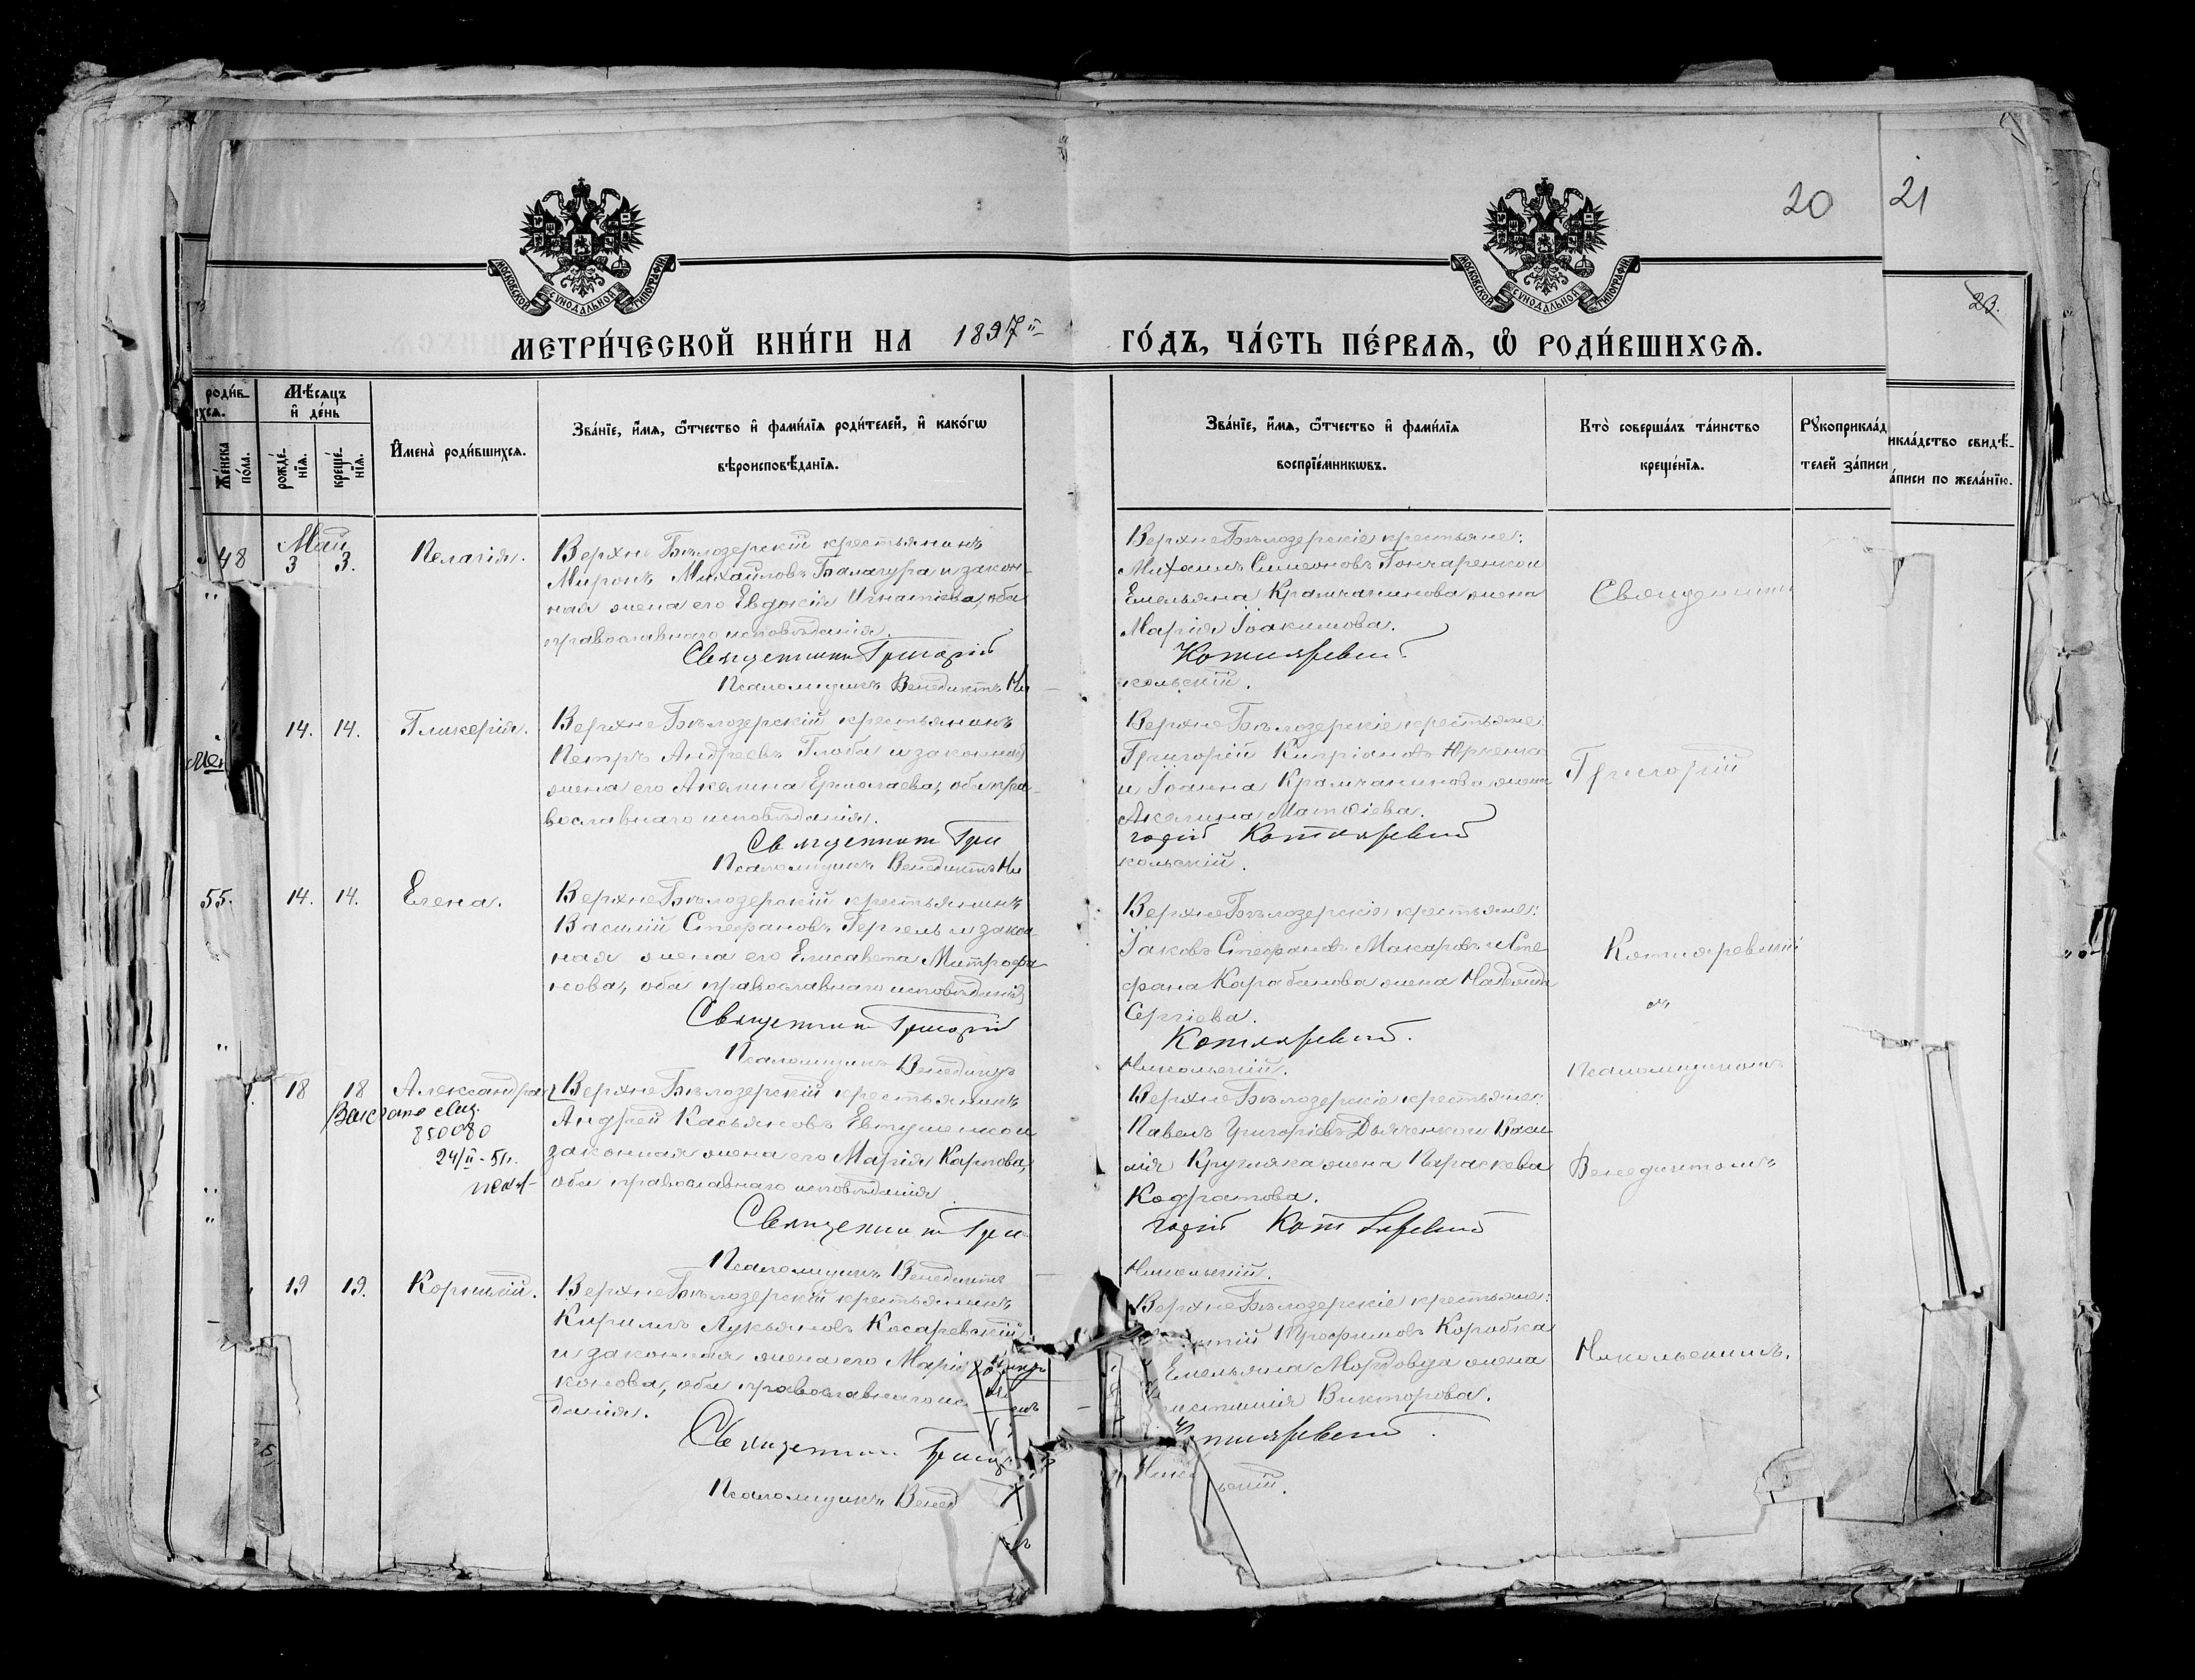 20
21
23.
МОСКОВСКОЙ СѴНОДАЛЬНОЙ ТИПОГРАФІИ
МОСКОВСКОЙ СѴНОДАЛЬНОЙ ТИПОГРАФІИ
МЕТРИ́ЧЕСКОЙ КНИ́ГИ НА 1897 й
ГО́ДЪ, ЧА́СТЬ ПЕ́РВАѦ, Ѡ РОДИ́ВШИХСѦ.
роди́в
ихсѧ.
Же́нска по́ла.
Мѣ́сѧцъ и҆ де́нь
рожде́нїѧ.
креще́нїѧ.
И҆мена̀ роди́вшихсѧ.
Зва́нїе, и҆́мѧ, ѻ҆́тчество и҆ фами́лїѧ роди́телей, и҆ како́гѡ
вѣроисповѣ́данїѧ.
Зва́нїе, и҆́мѧ, ѻ҆́тчество и҆ фами́лїѧ
воспрїе́мникѡвъ.
Кто̀ соверша́лъ та́инство
креще́нїѧ.
Рꙋкоприкла́д
телей за́писи
икла́дство свидѣ́
а́писи по жела́нїю.
48
Май
3 3.
Пелагія.
Верхне Бѣлозерскій крестьянинъ
Миронъ Михайловъ Балагура и закон-
ная жена его Евдокія Игнатіева, оба
православнаго исповѣданія.
Священникъ Григорій
Псаломщикъ Венедиктъ Ни
Верхне Бѣлозерскіе крестьяне:
Михаилъ Симеоновъ Гончаренко и
Емельяна Крамчанинова жена
Марія Іоакимова.
Котляревскій.
кольскій.
Священник
14. 14.
Гликерія.
Верхне Бѣлозерскій крестьянинъ
Петръ Андреевъ Глоба и законная
жена его Акелина Ермолаева, оба пра-
вославнаго исповѣданія.
Священникъ Гри
Псаломщикъ Венедиктъ Ни
Верхне Бѣлозерскіе крестьяне:
Григорій Кипріановъ Юрченко
и Іоанна Крамчанинова жена
Акелина Матѳіева.
горій Котляревскій
кольскій.
Григорій
55.
14. 14.
Елена.
Верхне Бѣлозерскій крестьянинъ
Василій Стефановъ Гергель и закон-
ная жена его Елисавета Митрофа-
нова, оба православнаго исповѣданія
Священникъ Григорій
Псаломщикъ Венедиктъ
Верхне Бѣлозерскіе крестьяне:
Іаковъ Стефановъ Макаровъ и Сте
фана Карабанова жена Надежда
Сергіева.
Котляревскій.
Никольскій.
Котляревскій
18 18
Александра
850080
24/II-51г.
Верхне Бѣлозерскій крестьянинъ
Андрей Касьяновъ Евтушенко и
законная жена его Марія Карпова,
оба православнаго исповѣданія
Священникъ Гри
Псаломщикъ Венедиктъ
Верхне Бѣлозерскіе крестьяне:
Павелъ Григоріевъ Дьяченко и Васи
лія Кругляка жена Параскева
Кодратова.
горій Котляревскій
Никольскій.
Псаломщикомъ
Венедиктомъ
19 19.
Корнилій.
Верхне Бѣлозерскій крестьянинъ
Кириллъ Лукьяновъ Косаревскій
и законная жена его Марі
конова, оба православнаго ис
данія.
Священникъ Григор
Псаломщикъ Венед
Верхне Бѣлозерскіе крестьяне:
Трофимовъ Коробка
Емельяна Мордовца жена
Викторова.
Никольскимъ.